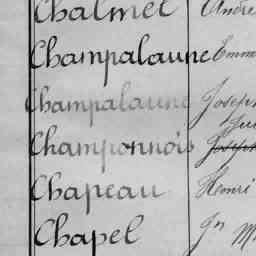 Chalmel André
Champalaune Emma
Champalaune Joseph
Championnois Joseph
Chapeau Henri
Chapel Jn